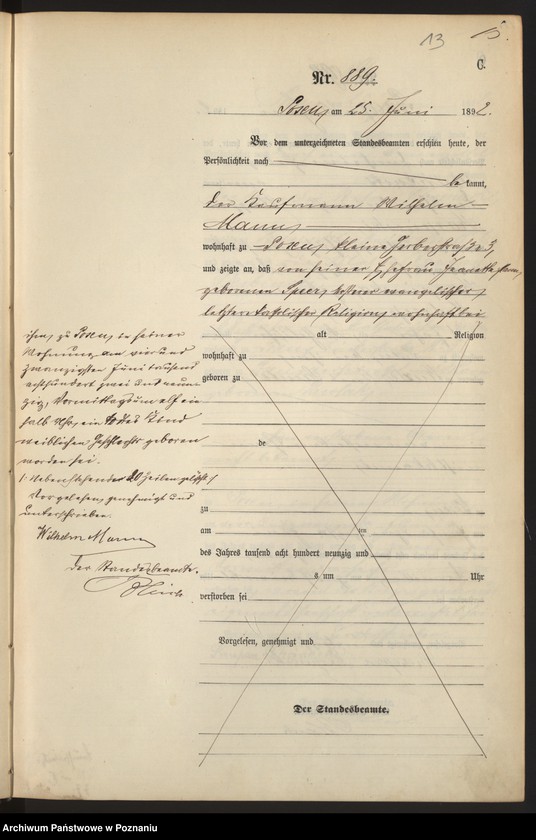 13 15.
C.
Nr. 889.
Posen, am 25. Juni 1892.
Vor dem unterzeichneten Standesbeamten erschien heute, der
Persönlichkeit nach
bekannt,
der Kaufmann Wilhelm
Mann,
wohnhaft zu Posen, kleine Gerberstraße 3,
und zeigte an, daß von seiner Ehefrau Jeanette Mann,
geborenen evangelischer,
letztere katholischer Religion, wohnhaft bei
ihm, zu Posen, in seiner
Wohnung, am vier und
zwanzigsten Juni tausend
achthundert zwei und neun
zig, Vormittags um elf ein
halb Uhr, ein todtes Kind
weiblichen Geschlechts geboren
worden sei.
Nebenstehende 20 Zeilen gelöscht
Vorgelesen, genehmigt und
unterschrieben
Wilhelm Mann
Der Standesbeamte.
alt Religion
wohnhaft zu
geboren zu
de
zu
am ten
des Jahres tausend acht hundert neunzig und
s um Uhr
verstorben sei
Vorgelesen, genehmigt und
Der Standesbeamte.
Archiwum Państwowe w Poznaniu